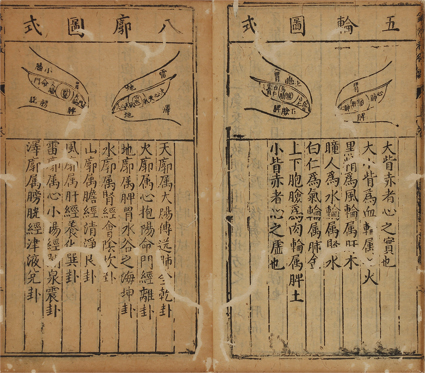 五輪圖式
大眥赤者心之實也
大小眥為血輪屬心火
黑睛為風輪屬肝木
瞳人為水輪屬腎水
白仁為氣輪屬肺金
上下胞瞼為肉輪屬脾土
小眥赤者心之虛也
八廓圖式
雷
澤
天廓屬大腸傳送肺金乾卦
火廓屬心抱陽命門經離卦
地廓屬脾胃水谷之海坤卦
水廓屬腎經會陰坎卦
山廓屬膽經清淨艮卦
風廓屬肝經養化巽卦
雷廓屬心小腸經泉震卦
澤廓屬膀胱經津液兌卦